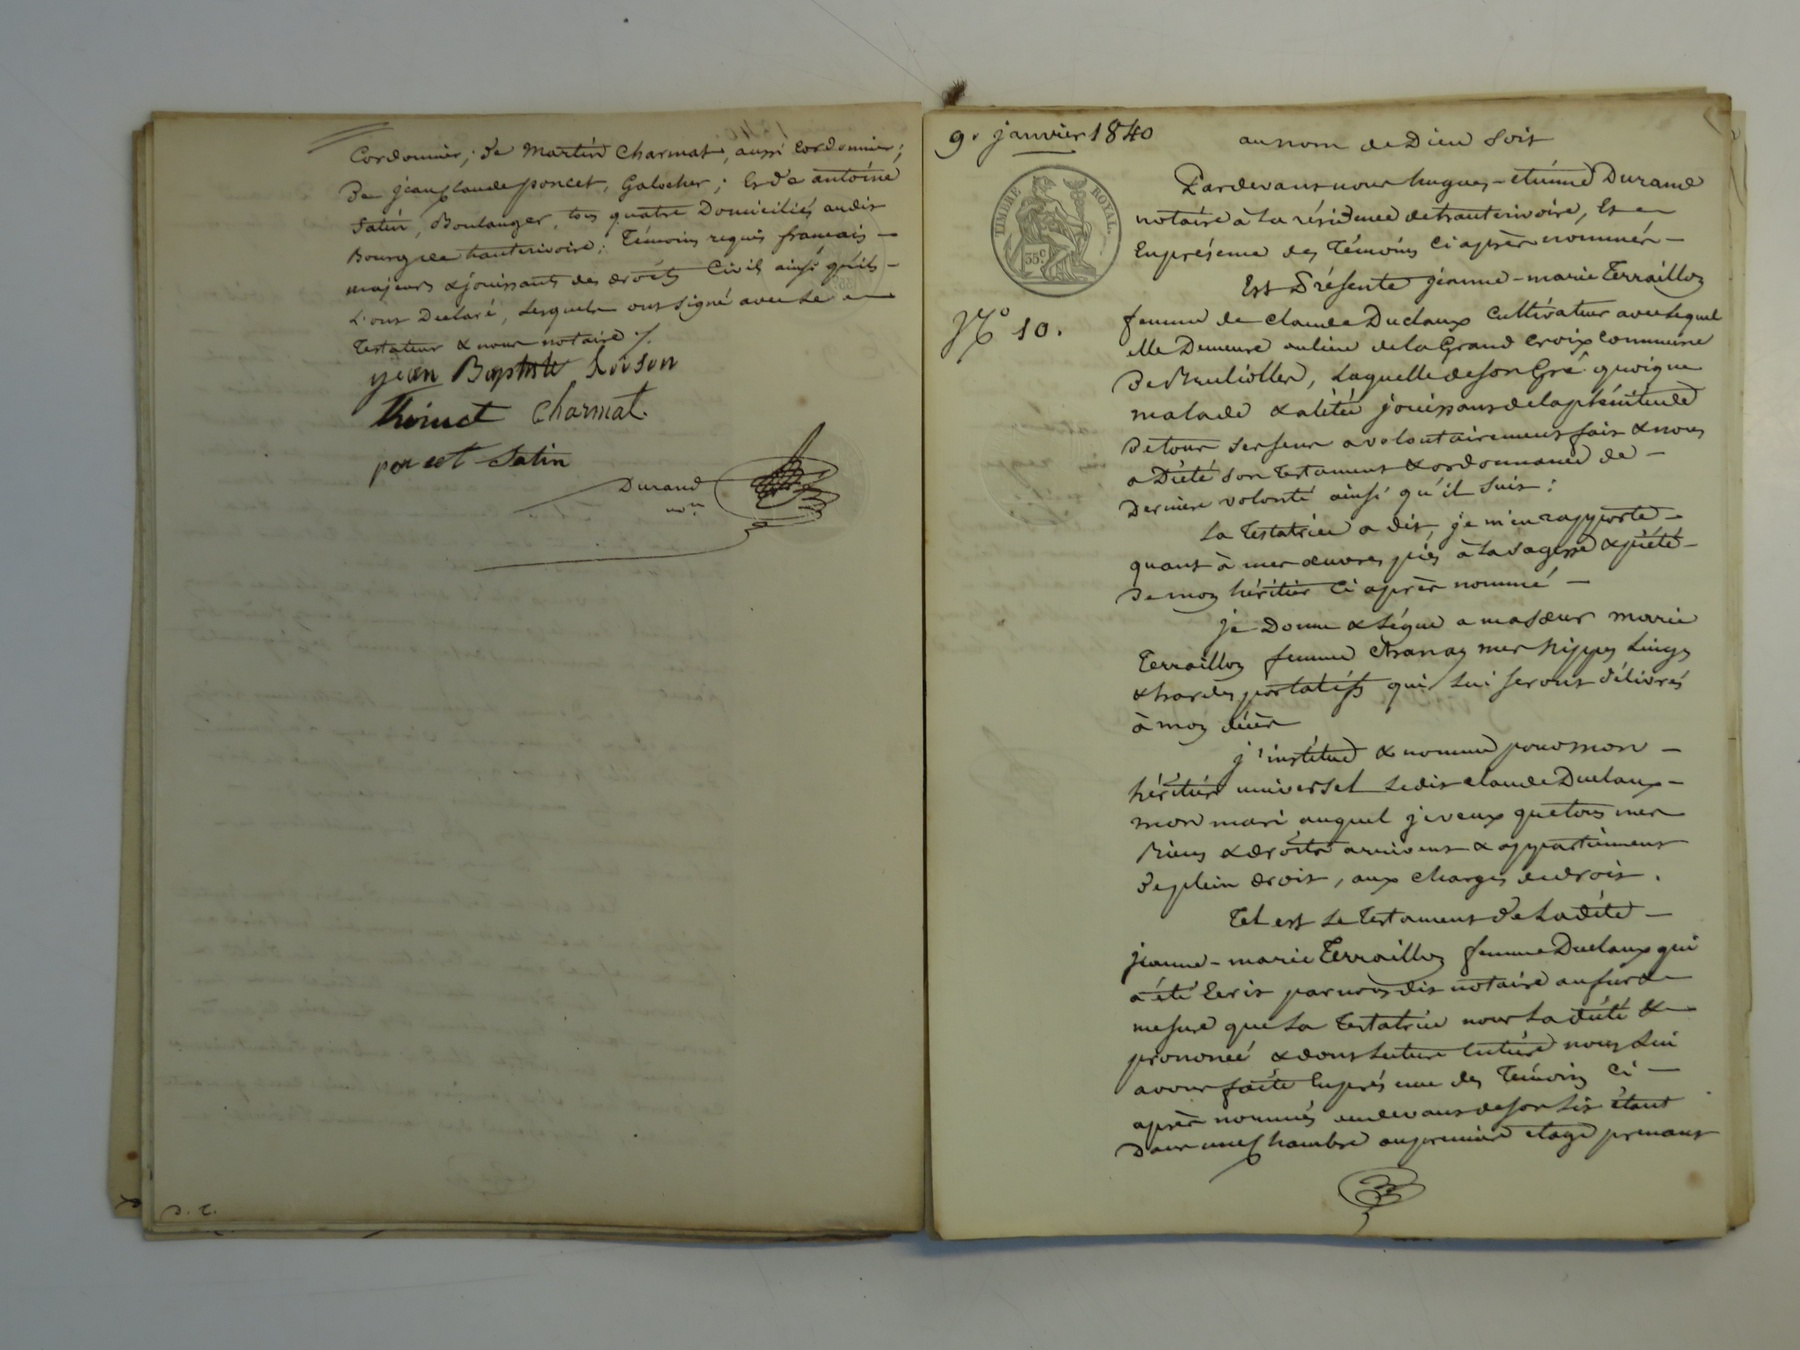 Cordonnier; de Martin Charmat, aussi Cordonnier;
De jean Claude poncet, Galocher; Et de antoine
Satin, Boulanger, tous quatre Domiciliés audit
Bourg de hauterivoire; Témoins requis français —
majeurs & jouissants des droits Civils ainsi qu'ils —
L'ont Déclaré, Lesquels ont signé avec Le —
Testateur & nous notaire ./.
jean Baptiste Loison
Thinet Charmat.
poncet Satin
Durand
nore
9. janvier 1840
TIMBRE ROYAL.
35c
No 10.
au nom de Dieu Soit
Pardevant nous hugues-etienne Durand
notaire à La résidence de hauterivoire, Et —
En présence des Témoins Ci après nommés —
Est Présente jeanne-marie Terraillon
femme de Claude Duclaux Cultivateur avec Lequel
elle Demeure au lieu de La Grand Croix Commune
De Brullioles, Laquelle de son Gré quoique
malade & alitée jouissant de la plénitude
De tous Ses sens a volontairement fait & nous
a Dicté Son Testament & ordonnance de —
Dernière volonté ainsi qu'il Suit:
La Testatrice a dit, je m'en rapporte —
quant à mes œuvres pies à La Sagesse & piété —
De mon héritier Ci après nommé —
je Donne & Lègue a ma Sœur marie
Terraillon femme mes Nippes Linges
& hardes portatifs qui Lui Seront délivrés
à mon décès
j'institue & nomme pour mon —
héritier universel Ledit Claude Duclaux —
mon mari auquel je veux que tous mes
Biens & droits arrivent & appartiennent
De plein droit, aux Charges de droit.
Tel est Le Testament de Ladite —
jeanne-marie Terraillon femme Duclaux qui
a été Ecrit par nous dit notaire au fur &
mesure que La Testatrice nous La dicté &
prononcé & dont Lecture entière nous Lui
avons faite En présence des Témoins Ci —
après nommés au devant de son Lit étant
Dans une Chambre au premier étage prenant